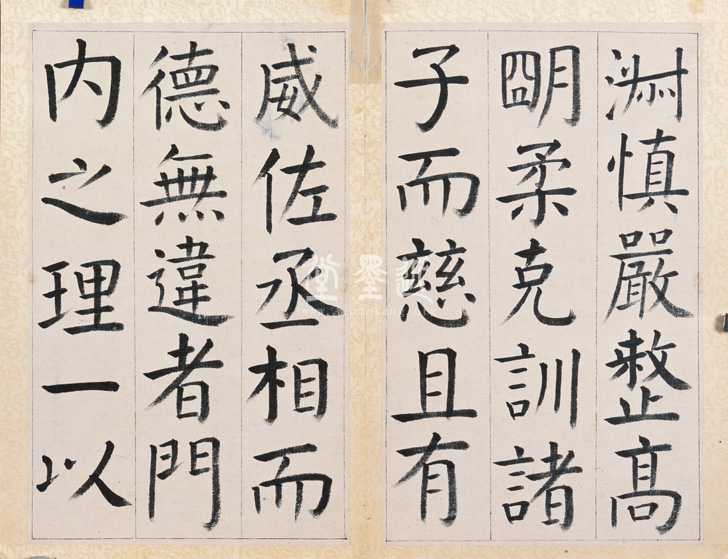 淑慎嚴整高
朙柔克訓諸
子而慈且有
威佐丞相而
德無違者門
内之理一以